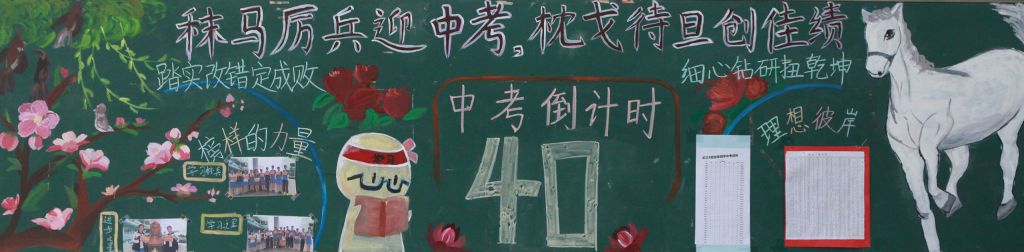 秣马厉兵迎中考,枕戈待旦创佳绩
踏实改错定成败
细心钻研扭乾坤
榜样的力量
中考倒计时
40
理想彼岸
学习之星